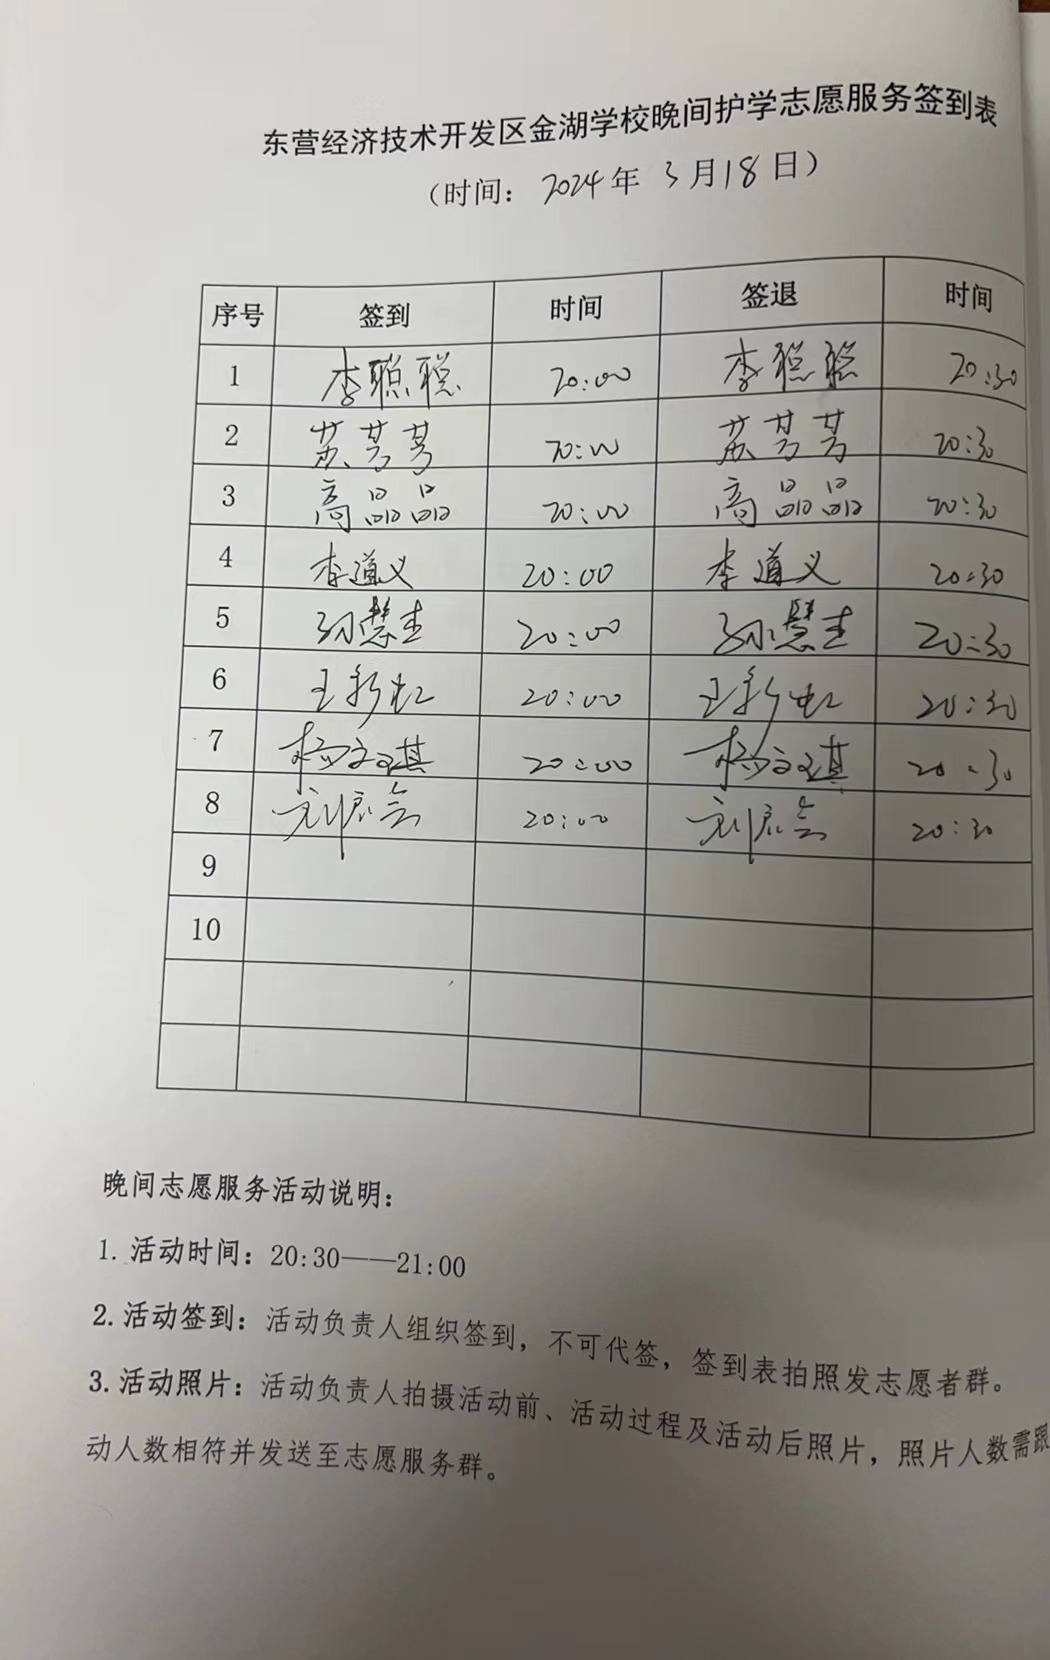 东营经济技术开发区金湖学校晚间护学志愿服务签到表
（时间：2024年 3月18日）
序号 签到 时间 签退 时间
1 李聪聪 20:00 李聪聪 20:30
2 苏芳芳 20:00 苏芳芳 20:30
3 高晶晶 20:00 高晶晶 20:30
4 李道义 20:00 李道义 20:30
5 孙慧 20:00 孙慧 20:30
6 王新虹 20:00 王新虹 20:30
7 杨文琪 20:00 杨文琪 20:30
8 刘 20:00 刘 20:30
9
10
晚间志愿服务活动说明：
1. 活动时间：20:30——21:00
2. 活动签到：活动负责人组织签到，不可代签，签到表拍照发志愿者群。
3. 活动照片：活动负责人拍摄活动前、活动过程及活动后照片，照片人数需跟
动人数相符并发送至志愿服务群。